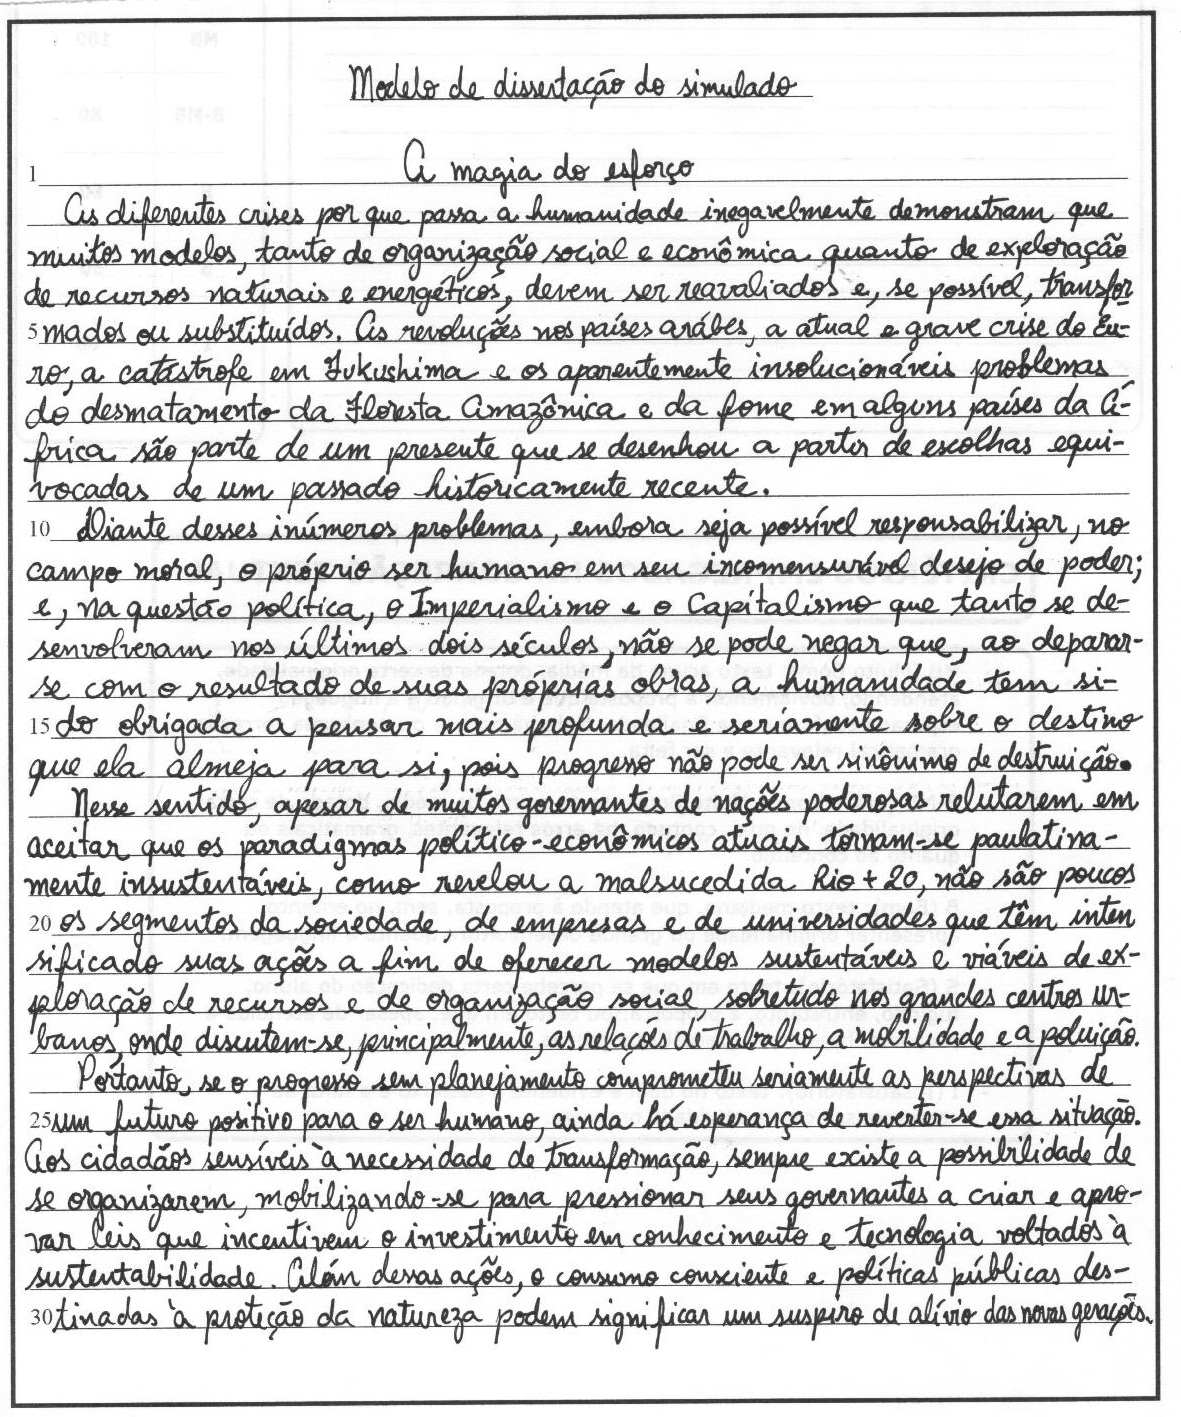 Modelo de dissertação do simulado
1 A magia do esforço
As diferentes crises por que passa a humanidade inegavelmente demonstram que
muitos modelos, tanto de organização social e econômica quanto de exploração
de recursos naturais e energéticos, devem ser reavaliados e, se possível, transfor
5 mados ou substituídos. As revoluções nos países arábes, a atual e grave crise do Eu-
ro, a catástrofe em Fukushima e os aparentemente insolucionáveis problemas
do desmatamento da Floresta Amazônica e da fome em alguns países da Á-
frica são parte de um presente que se desenhou a partir de escolhas equi-
vocadas de um passado historicamente recente.
10 Diante desses inúmeros problemas, embora seja possível responsabilizar, no
campo moral, o próprio ser humano em seu incomensurável desejo de poder;
e, na questão política, o Imperialismo e o Capitalismo que tanto se de-
senvolveram nos últimos dois séculos, não se pode negar que, ao deparar-
se com o resultado de suas próprias obras, a humanidade tem si-
15 do obrigada a pensar mais profunda e seriamente sobre o destino
que ela almeja para si, pois progresso não pode ser sinônimo de destruição.
Nesse sentido, apesar de muitos governantes de nações poderosas relutarem em
aceitar que os paradigmas político-econômicos atuais tornam-se paulatina-
mente insustentáveis, como revelou a malsucedida Rio + 20, não são poucos
20 os segmentos da sociedade, de empresas e de universidades que têm inten
sificado suas ações a fim de oferecer modelos sustentáveis e viáveis de ex-
ploração de recursos e de organização social, sobretudo nos grandes centros ur-
banos, onde discutem-se, principalmente, as relações de trabalho, a mobilidade e a poluição.
Portanto, se o progresso sem planejamento comprometeu seriamente as perspectivas de
25 um futuro positivo para o ser humano, ainda há esperança de reverter-se essa situação.
Aos cidadãos sensíveis à necessidade de transformação, sempre existe a possibilidade de
se organizarem, mobilizando-se para pressionar seus governantes a criar e apro-
var leis que incentivem o investimento em conhecimento e tecnologia voltados à
sustentabilidade. Além dessas ações, o consumo consciente e políticas públicas des-
30 tinadas à proteção da natureza podem significar um suspiro de alívio das novas gerações.